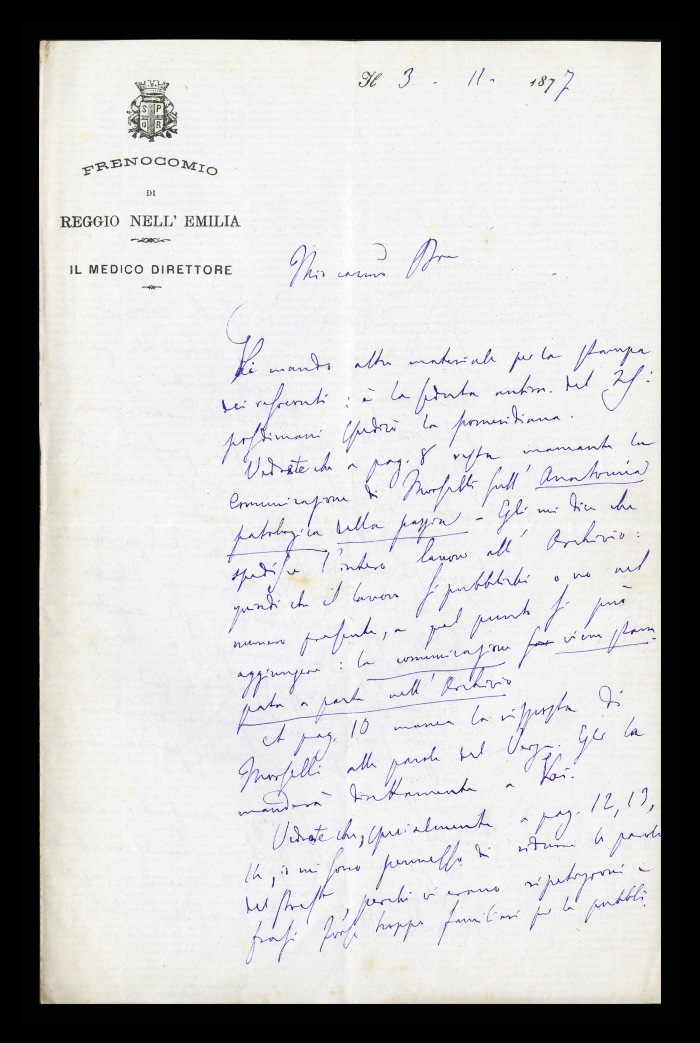 Il 3 - 11 - 1877
S P
Q R
FRENOCOMIO
DI
REGGIO NELL' EMILIA
IL MEDICO DIRETTORE
Mio carmo
Vi mando altro materiale per la stampa
dei resoconti: è la seduta antim. del 25:
posdimani spedirò la pomeridiana.
Vedrete che a pag. 8 resta mancante la
Comunicazione di Morselli sull' Anatomia
patologica della pazzia - Egli mi dice che
spedisce l'intero lavoro all' Archivio:
quindi che il lavoro si pubblichi o no nel
numero presente, a quel punto si può
aggiungere: la comunicazione viene stam
pata a parte nell' Archivio
A pag. 10 manca la risposta di
Morselli alle parole del Verga. Egli la
manderà direttamente a Voi.
Vedrete che, specialmente a pag. 12, 13,
14, io mi sono permesso di ridurre le parole
del perchè vi erano ripetizioni e
frasi forse troppo famigliari per la pubbli